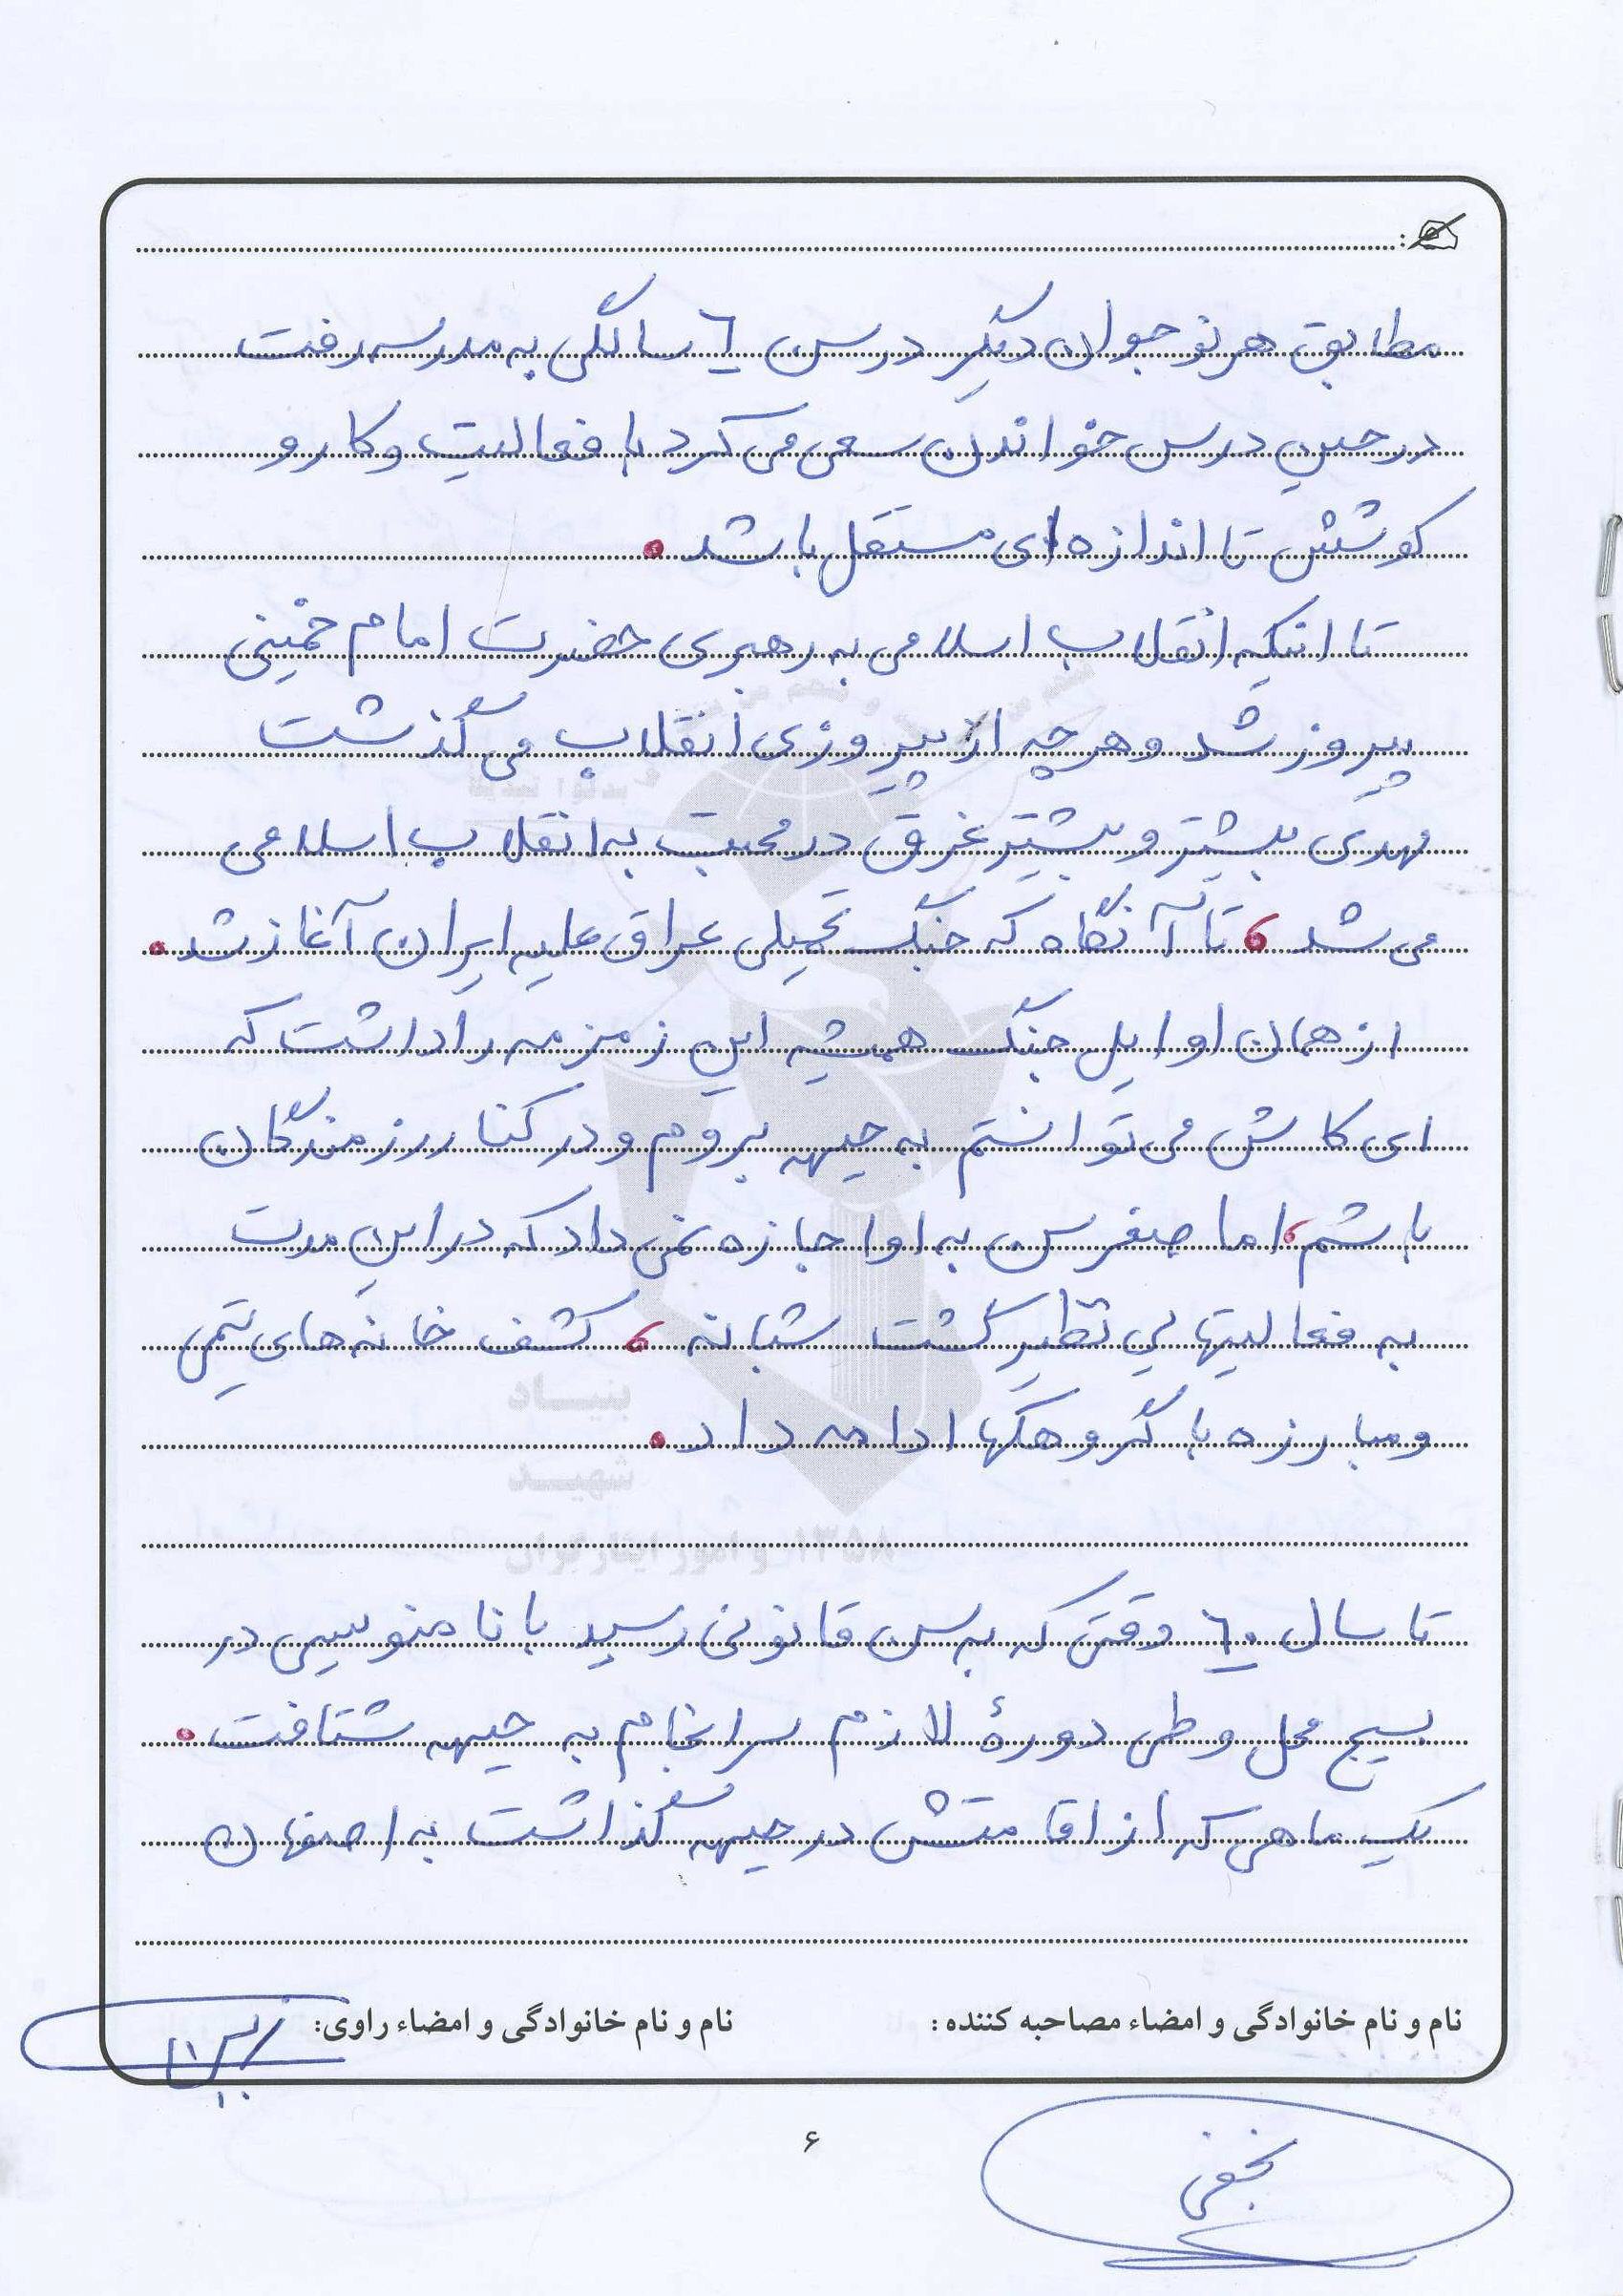 مطابق هر نوجوان دیگر در سن ٦ سالگی به مدرسه رفت
در حین درس خواندن سعی می کرد با فعالیت و کار و
کوشش تا اندازه ای مستقل باشد.
تا اینکه انقلاب اسلامی به رهبری حضرت امام خمینی
پیروز شد و هر چه از پیروزی انقلاب می گذشت
مهدی بیشتر و بیشتر غرق در محبت به انقلاب اسلامی
می شد، تا آنگاه که جنگ تحمیلی عراق علیه ایران آغاز شد.
از همان اوایل جنگ همیشه این زمزمه را داشت که
ای کاش می توانستم به جبهه بروم و در کنار رزمندگان
باشم، اما صغر سن به او اجازه نمی داد که در این مدت
به فعالیتهایی نظیر گشت شبانه، کشف خانه های تیمی
و مبارزه با گروهکها ادامه داد.
تا سال ٦٠ وقتی که به سن قانونی رسید با نامنویسی در
بسیج محل و طی دورهٔ لازم سرانجام به جبهه شتافت.
یک ماهی که از اقامتش در جبهه گذاشت به اصفهان
نام و نام خانوادگی و امضاء مصاحبه کننده: نام و نام خانوادگی و امضاء راوی:
۶
نجفی
بنیاد
شهید
و امور ایثارگران ۱۳۵۸